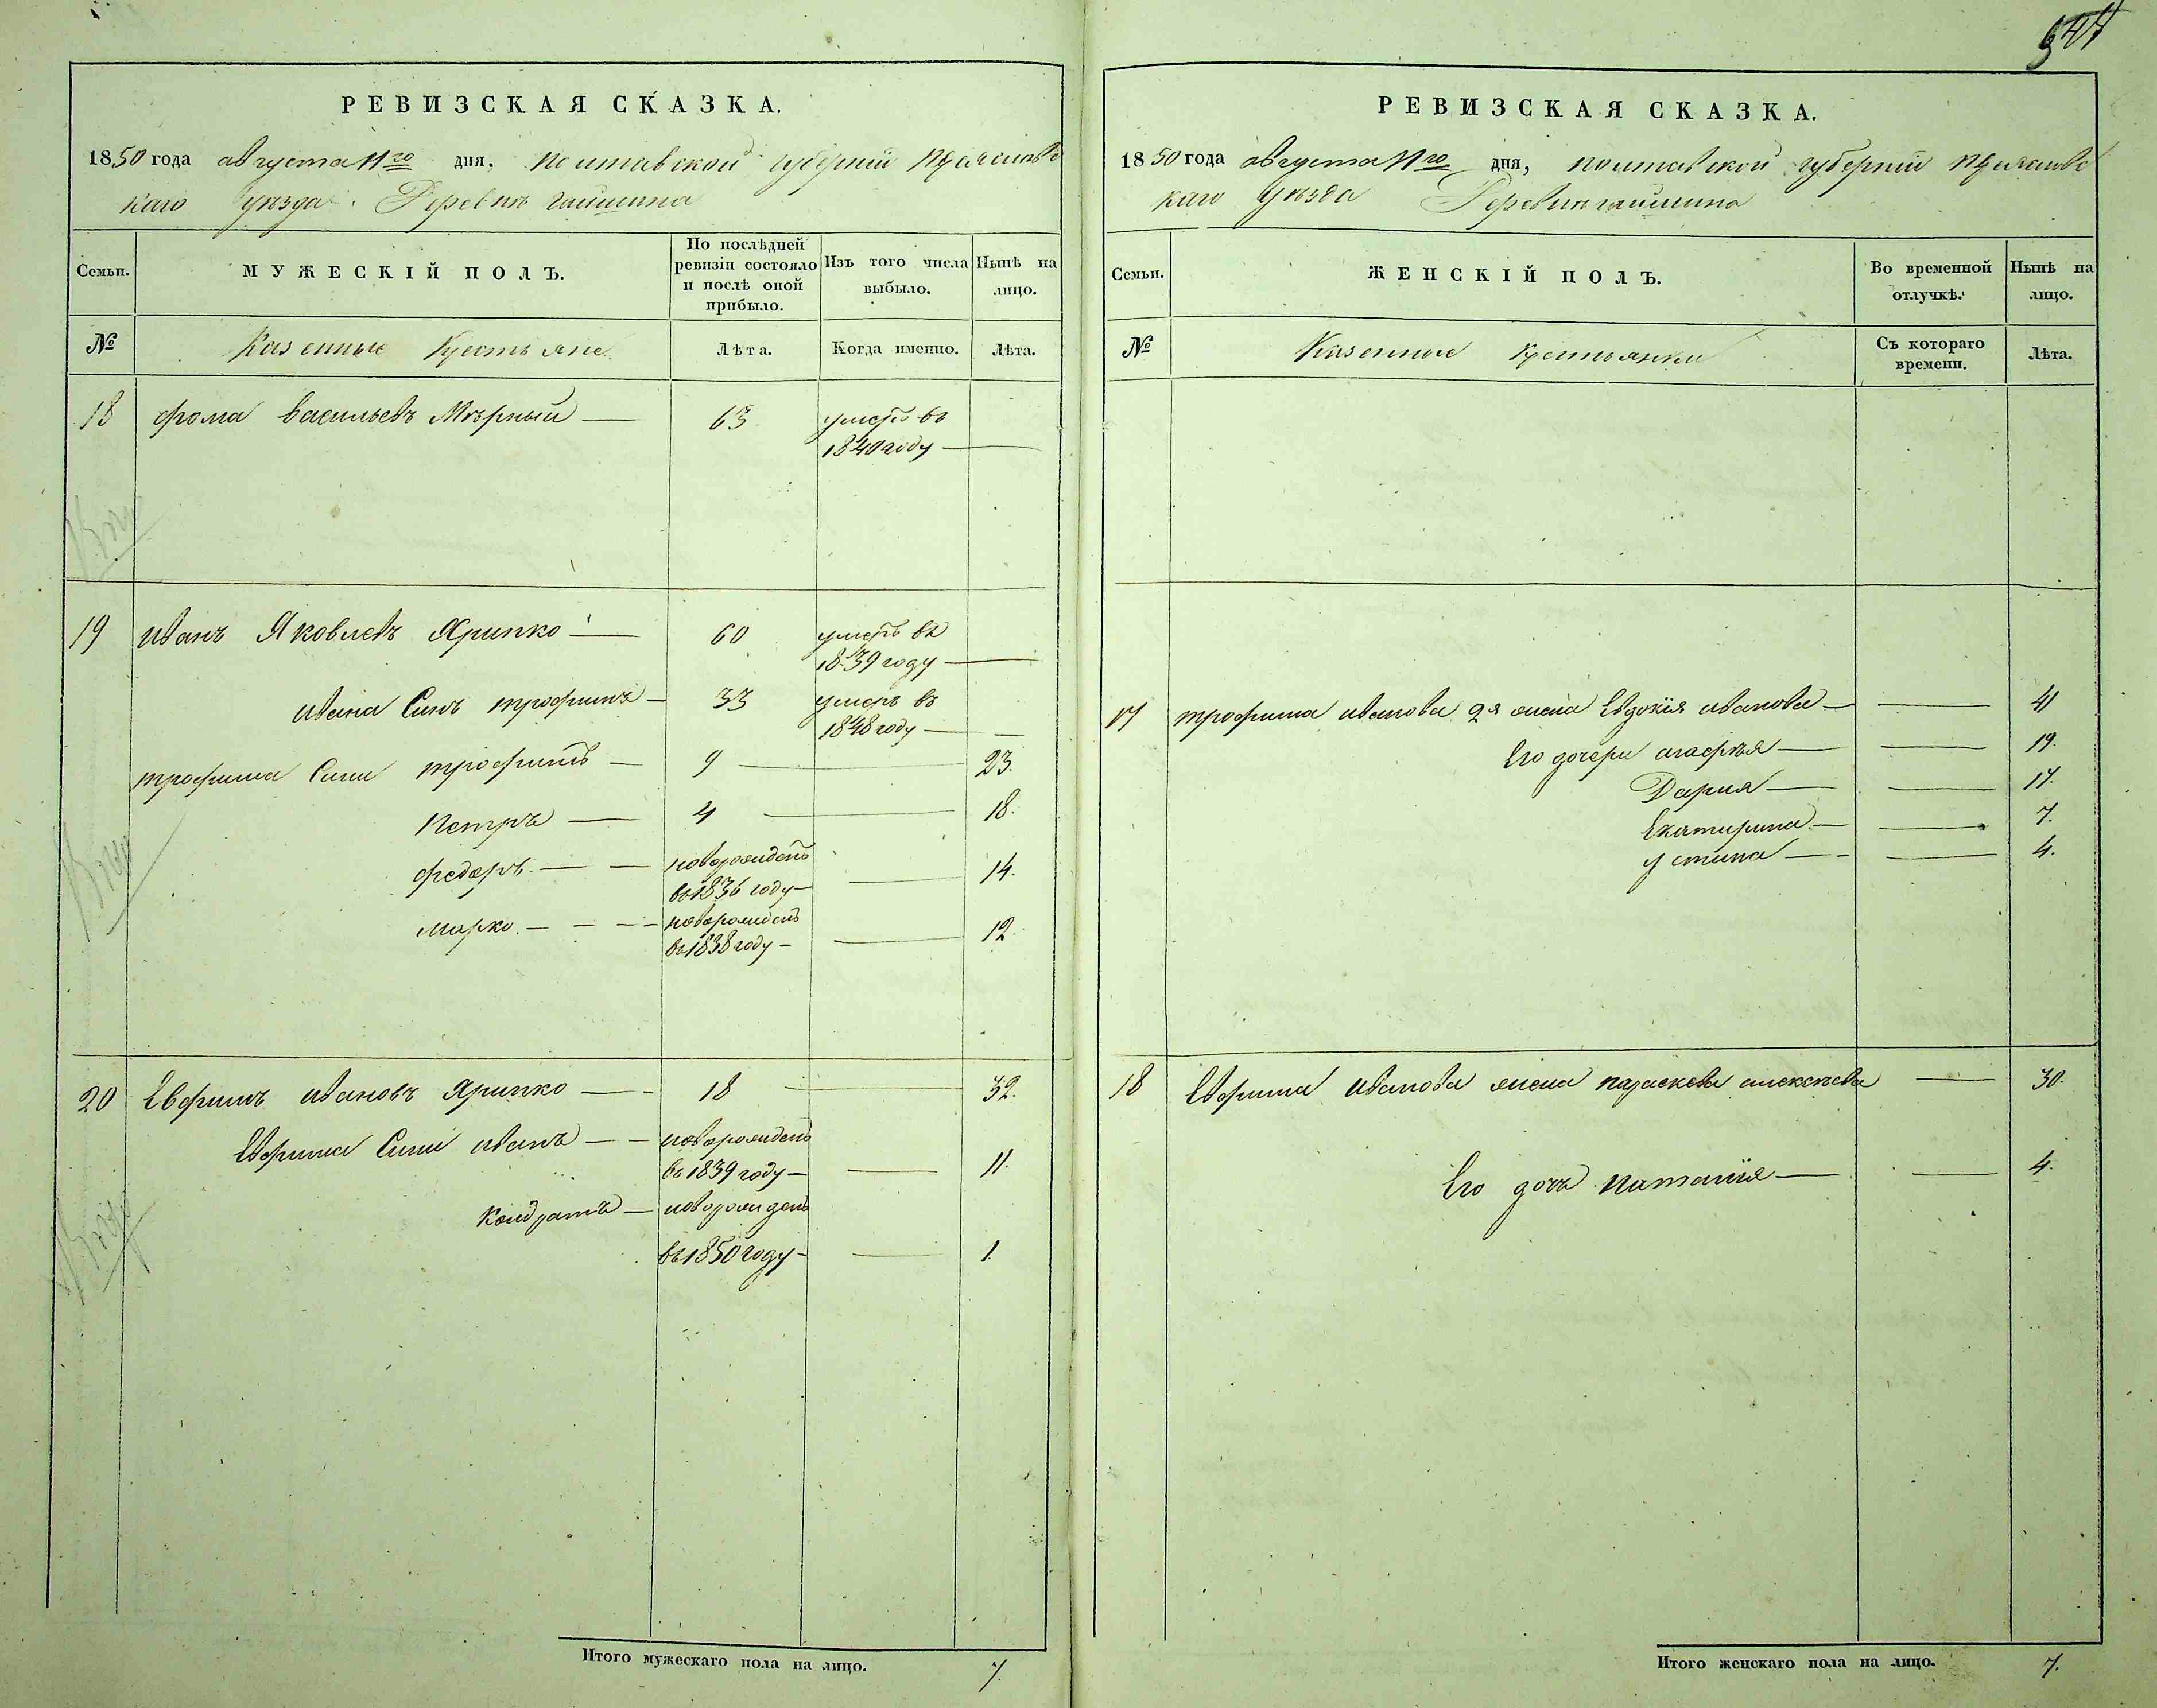 РЕВИЗСКАЯ СКАЗКА.
1850 года августа 11го дня, полтавской губернии
каго уезда Деревни
Семьи.
МУЖЕСКІЙ ПОЛЪ.
По послѣдней ревизіи состояло и послѣ оной прибыло.
Изъ того числа выбыло.
Нынѣ на лицо.
№ Казенные Крестьяне Лѣта. Когда именно. Лѣта.
18 фома васильевъ Мѣрный — 63 умеръ въ
1840 году —
19 иванъ Яковлевъ Ярипко — 60 умеръ въ
1839 году —
ивана Синъ трофимъ — 33 умеръ въ
1848 году — —
трофима Сини трофимъ — 9 — — 23.
Петръ — 4 — — 18.
федоръ — — новорожденъ
въ 1836 году — — 14.
марко — — — новорожденъ
въ 1838 году — — 12.
20 Евфимъ ивановъ Ярипко — — 18 — — 32.
Евфима Сини иванъ — — новорожденъ
въ 1839 году — — 11.
Кондратъ — новорожденъ
въ 1850 году — — 1.
Итого мужескаго пола на лицо. 7.
РЕВИЗСКАЯ СКАЗКА.
1850 года августа 11го дня, полтавской губернии
каго уѣзда Деревни
Семьи.
ЖЕНСКІЙ ПОЛЪ.
Во временной отлучкѣ.
Нынѣ на лицо.
№ Казенные крестьянки Съ котораго времени. Лѣта.
17 трофима иванова 2я жена Евдокія иванова — — 41
Его дочери агафѣя — — 19.
Дария — — 17.
Екатирина — — 7.
устина — — — 4.
18 Евфима иванова жена параскева алексѣева — 30.
Его дочъ наталія — — 4.
Итого женскаго пола на лицо. 7.